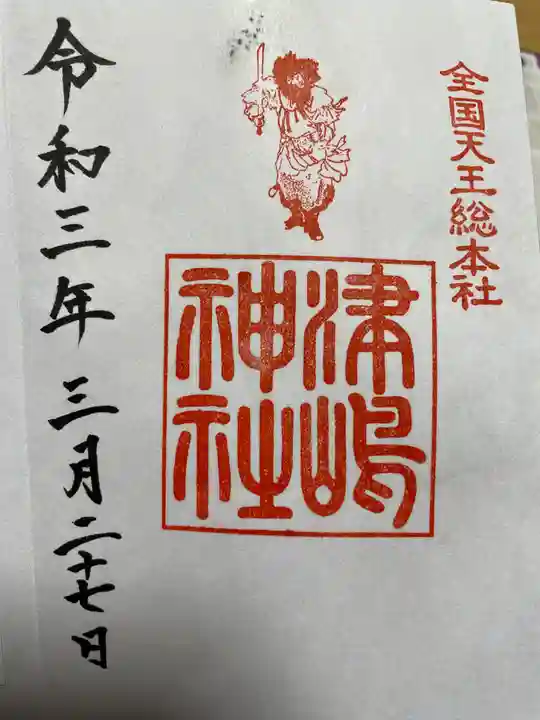 全国天王総本社
津嶋
神社
令和三年三月二十七日